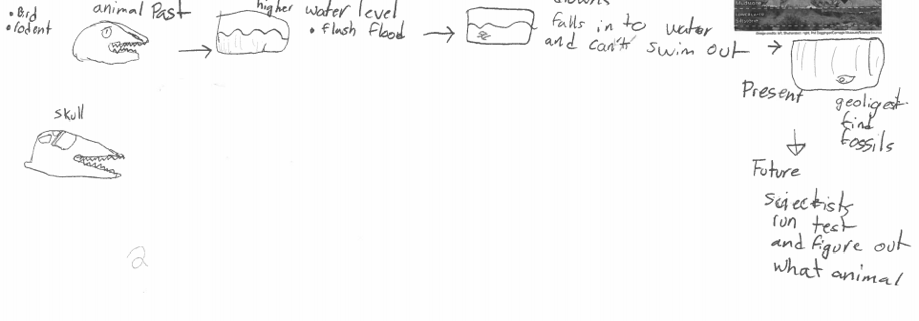 • Bird
• rodent
animal Past
higher water level
• flash flood
falls in to water
and can't swim out
Present
geoligest
find
fossils
skull
Future
sciectists
run test
and figure out
what animal
2